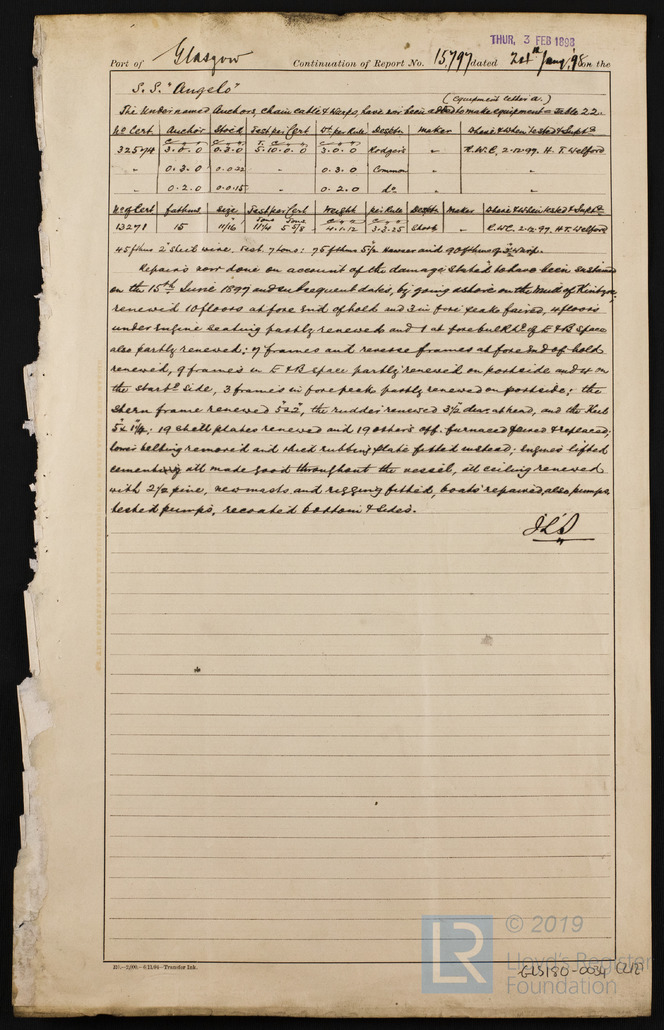 THUR, 3 FEB 1898
Port of Glasgow Continuation of Report No. 15,797 dated 24th Jany '98 on the
S.S. "Angelo"
(equipment letter a.)
The Undernamed Anchors, Chain cable & Warps, have now been added to make equipment = Table 22.
No Cert Anchor Stock Test per Cert Wt. per Rule Descptn Maker Where & When tested & Supt.
3.0.0 0.3.0 5.10.0.0 3.0.0 Rodgers " 2.12.97. H. T. Welford
" 0.3.0 0.0.22 " 0.3.0 Common " "
" 0.2.0 0.0.15 " 0.2.0 do " "
No of Cert fathms Size Test per Cert Weight per Rule Descptn Maker Where & When tested & Supt.
13271 15 11/16 11 1/4 5 5/8 4.1.12 3.3.25 " 2.12.97. H.T. Welford
45 fthms 2" steel wire. Test. 7 tons: 75 fthms 5 1/2 Hawser and 90 fthms warp.
Repairs now done on account of the damage stated to have been sustained
on the 15th June 1897 and subsequent dates, by going ashore on the Mull of
renewed 10 floors at fore end of hold and 3 in fore peak faired, 4 floors
under Engine seating partly renewed and 1 at fore bulkhd. of E & B space
also partly renewed; 7 frames and reverse frames at fore end of hold
renewed, 9 frames in E & B space partly renewed on port side and on
the starbd. side, 3 frames in fore peak partly renewed on port side; the
stern frame renewed, the rudder renewed 3 1/2 diar. at head, and the Keel
19 shell plates renewed and 19 others off, furnaced faired & replaced,
lower belting removed and thick rubbing plate fitted instead; Engines lifted
cementing all made good throughout the vessel, all ceiling renewed
with 2 1/2 pine, new masts and rigging fitted, boats repaired, also pumps,
tested pumps, recoated bottom & sides.
JLS
Transfer Ink.
© 2019
LR
Lloyd's Register
Foundation
GLS180-0034 (2/2)